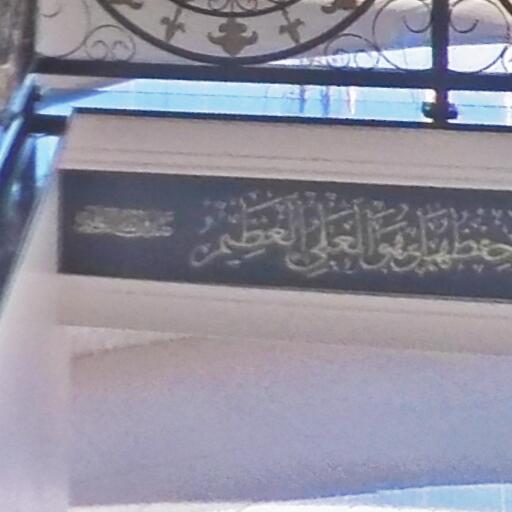 حِفْظُهُمَا وَهُوَ الْعَلِيُّ الْعَظِيمُ